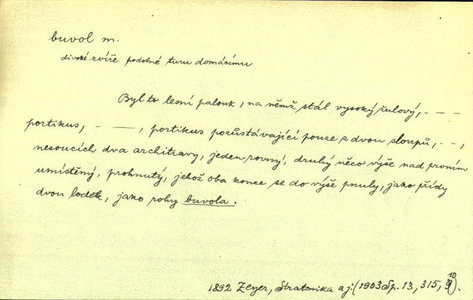 buvol m.
divoké zvíře podobné turu domácímu
Byl to lesní palouk, na němž stál vysoký žulový, - - -
portikus, - —, portikus pozůstávající pouze z dvou sloupů, - -,
nesoucích dva architravy, jeden rovný, druhý něco výše nad prvním
umístěný, prohnutý, jehož oba konce se do výše pnuly, jako přídy
dvou loděk, jako rohy buvola.
1892 Zeyer, Stratonika a j. (1903 Sp. 13, 315, 10).